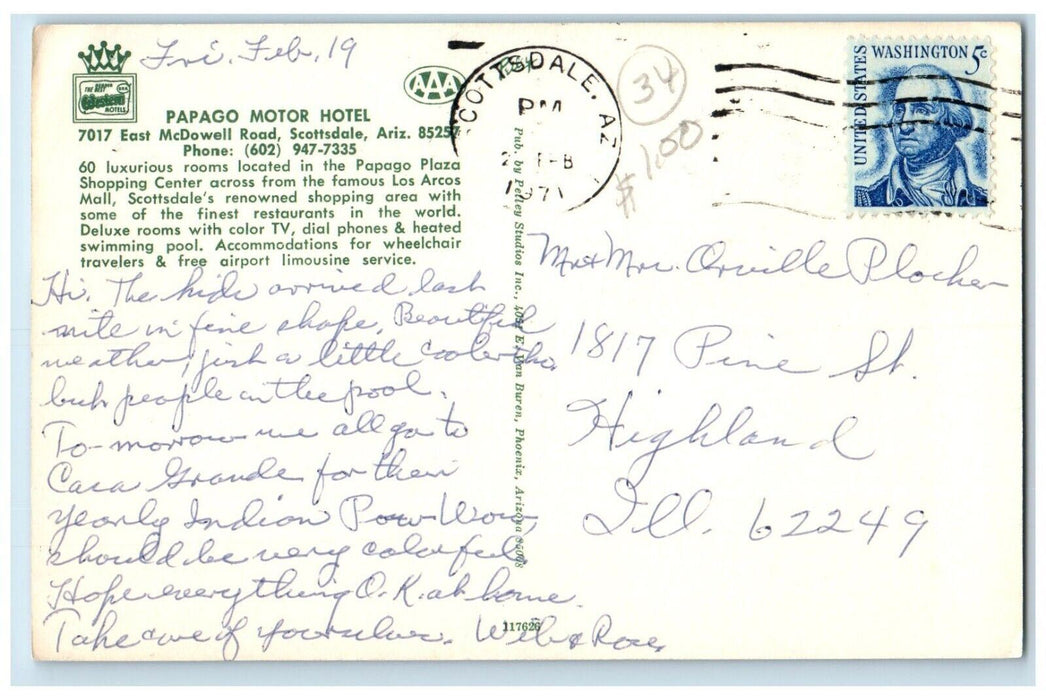 Fri. Feb. 19
THE BEST
Western
MOTELS
AAA
PAPAGO MOTOR HOTEL
7017 East McDowell Road, Scottsdale, Ariz. 85257
Phone: (602) 947-7335
60 luxurious rooms located in the Papago Plaza
Shopping Center across from the famous Los Arcos
Mall, Scottsdale's renowned shopping area with
some of the finest restaurants in the world.
Deluxe rooms with color TV, dial phones & heated
swimming pool. Accommodations for wheelchair
travelers & free airport limousine service.
Hi. The kids arrived last
nite in fine shape. Beautiful
weather, just a little cooler tho
but people in the pool.
To-morrow we all go to
Casa Grande for their
yearly Indian Pow-Wow,
should be very colorful
Hope everything O.K. at home.
Take care of yourselves. Web & Rose
Pub. by Petley Studios Inc., 4051 E. Van Buren, Phoenix, Arizona 85008
117626
SCOTTSDALE, AZ
PM
FEB
1971
34
$1.00
UNITED STATES
WASHINGTON 5c
Mr & Mrs. Orville Plocher
1817 Pine St.
Highland
Ill. 62249